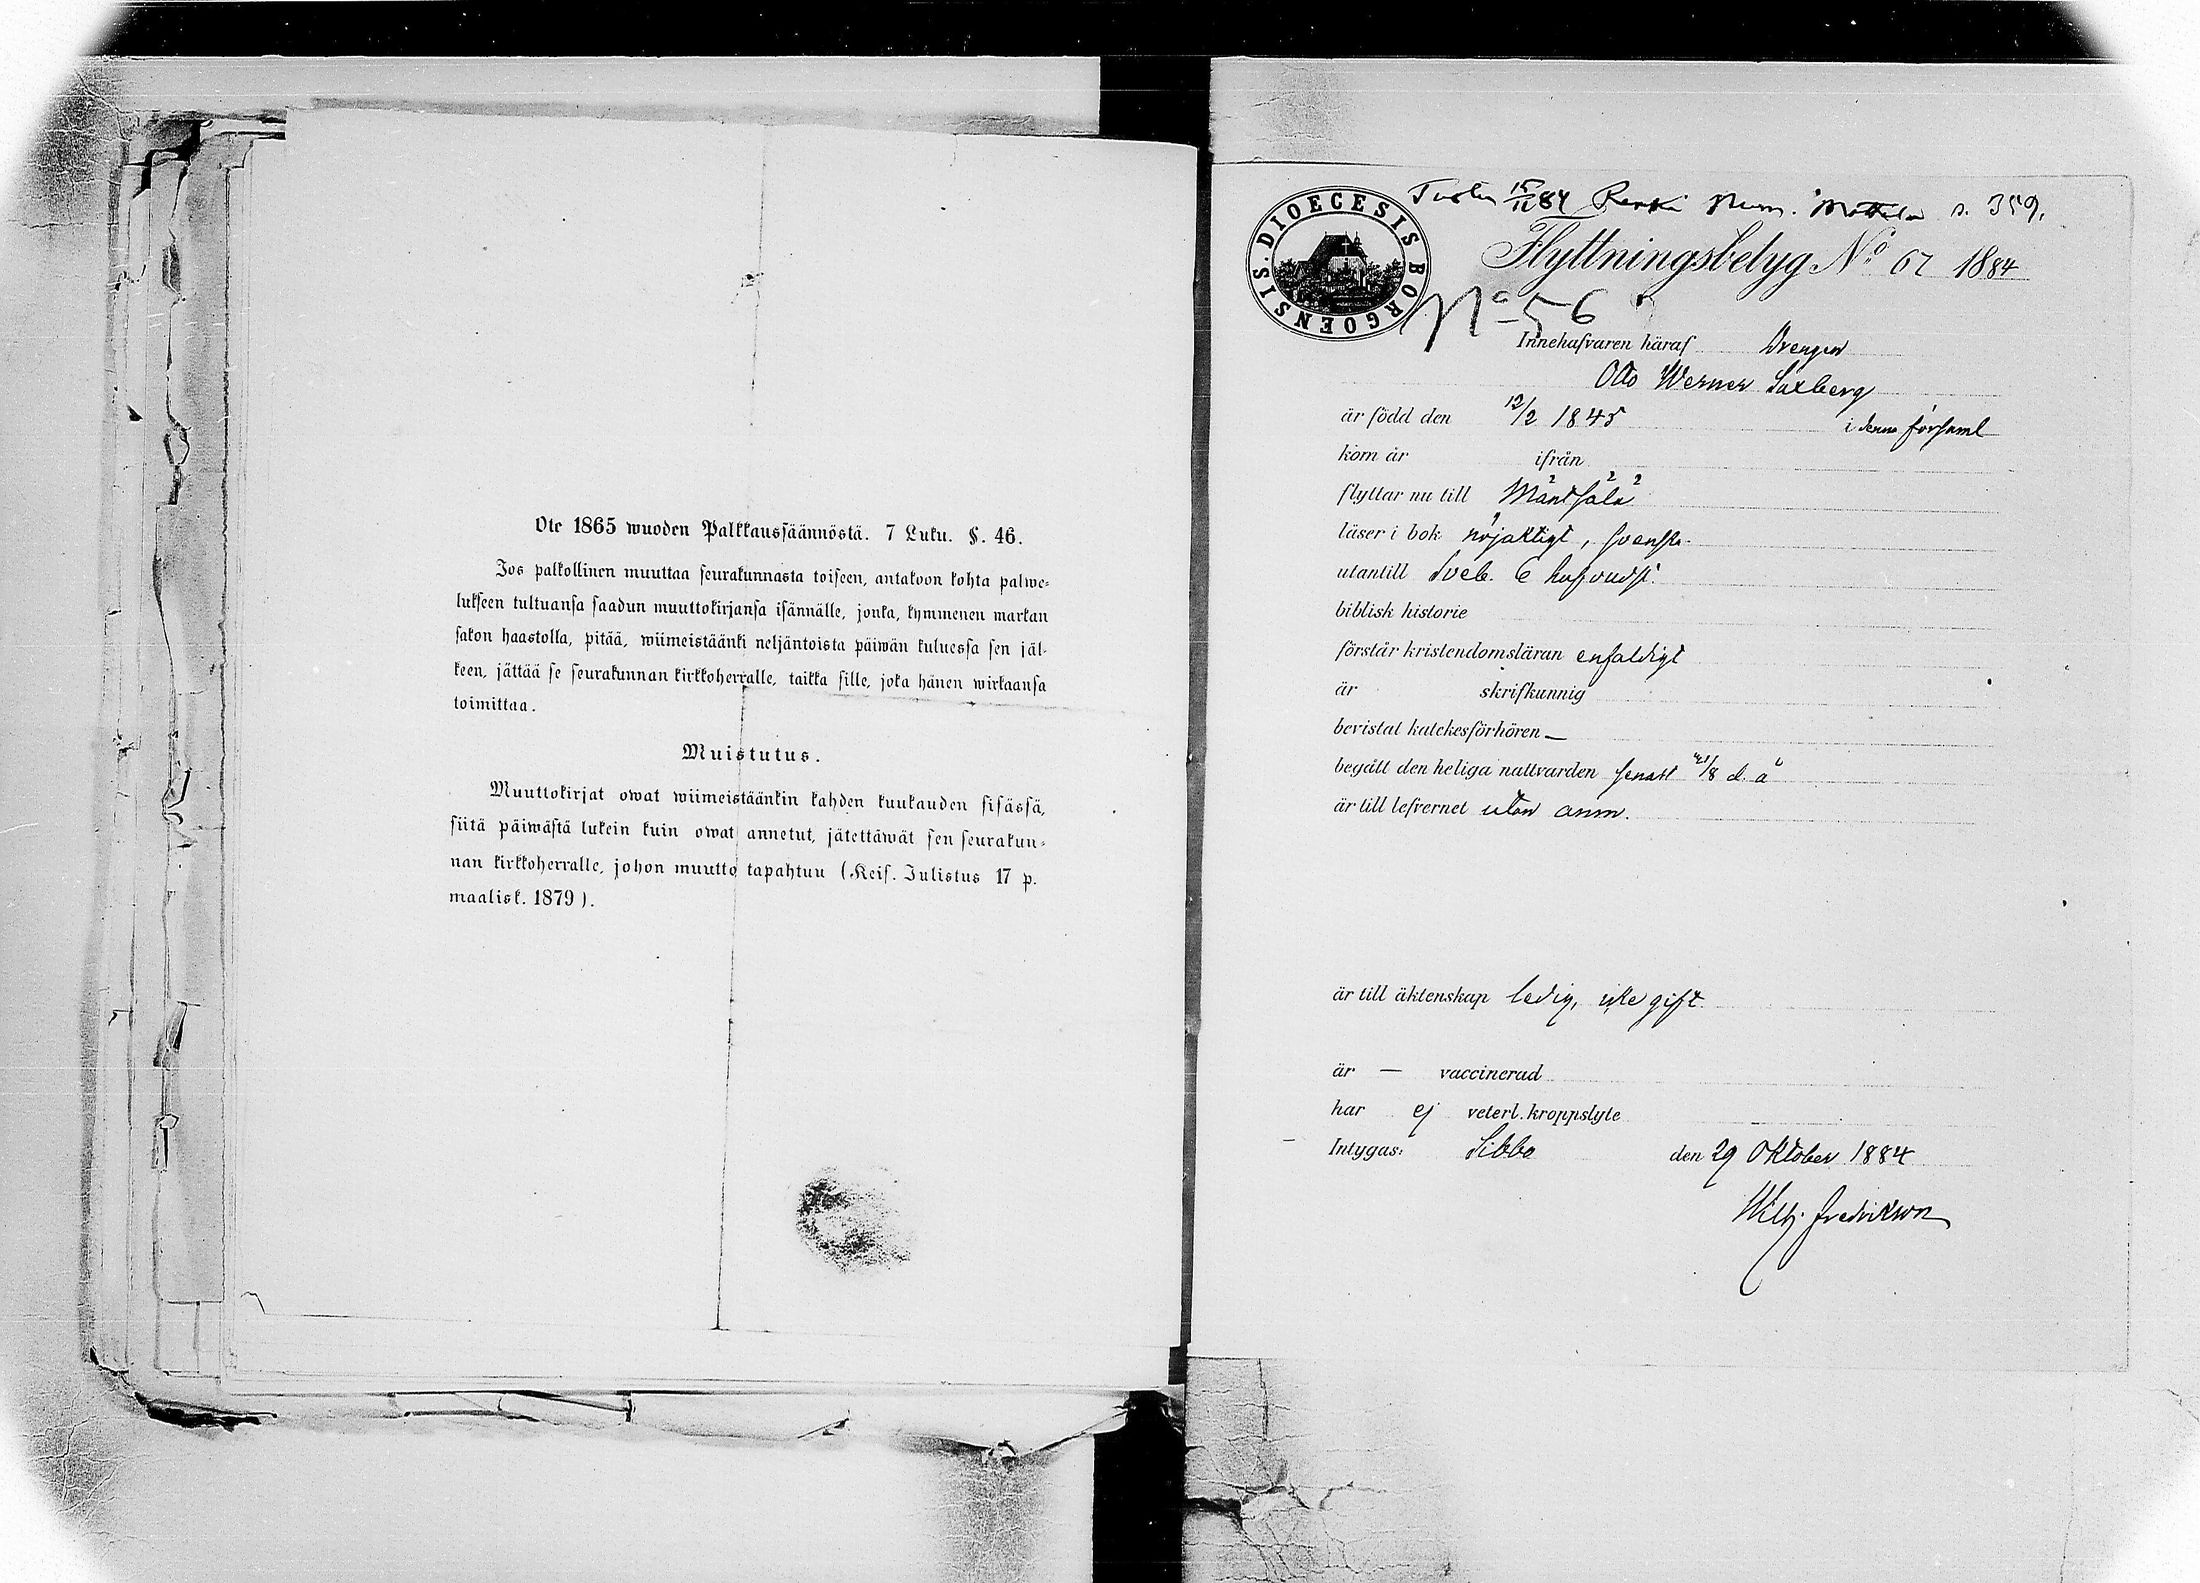 Ote 1865 wuoden Palkkaussäännöstä. 7 Luku. §. 46.
Jos palkollinen muuttaa seurakunnasta toiseen, antakoon kohta palwe-
lukseen tultuansa saadun muuttokirjansa isännälle, jonka, kymmenen markan
sakon haastolla, pitää, wiimeistäänki neljäntoista päiwän kuluessa sen jäl-
keen, jättää se seurakunnan kirkkoherralle, taikka sille, joka hänen wirkaansa
toimittaa.
Muistutus.
Muuttokirjat owat wiimeistäänkin kahden kuukauden sisässä,
siitä päiwästä lukein kuin owat annetut, jätettäwät sen seurakun-
nan kirkkoherralle, johon muutto tapahtuu (Keis. Julistus 17 p.
maalisk. 1879).
DIOECESIS BORGOENSIS.
84 s. 359.
Flyttningsbetyg No 67 1884
No 56
Innehafvaren häraf Drengen
Otto Werner Saxberg
är född den 12/2 1845 i denna församl
kom år ifrån
flyttar nu till Mäntsälä
läser i bok nöjaktigt, svenska
utantill Sveb. 6 hufvudst.
biblisk historie
förstår kristendomsläran enfaldigt
är skrifkunnig
bevistat katekesförhören —
begått den heliga nattvarden senast 21/8 d. å
är till lefvernet utan anm.
är till äktenskap ledig, icke gift
är — vaccinerad
har ej veterl. kroppslyte
Intygas: Sibbo den 29 Oktober 1884
Wilh. Fredrikson